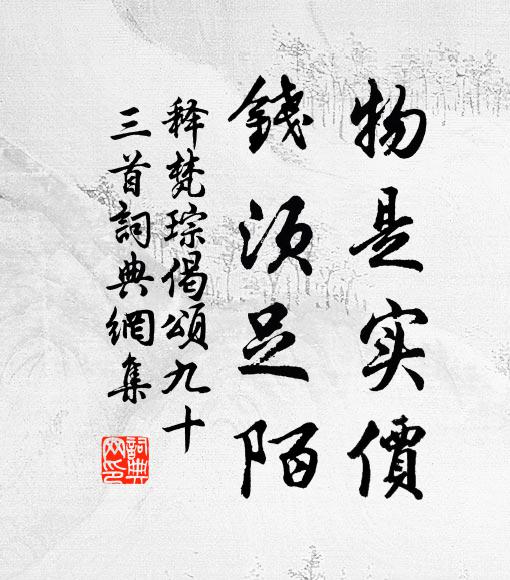 物是实價
錢须足陌
释梵琮偈頌九十
三首詞典網集
詞典网印